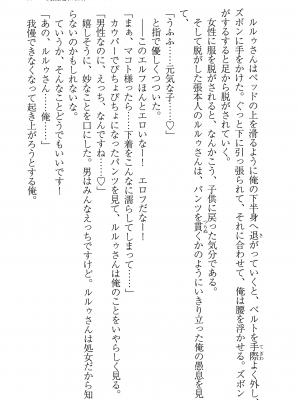 ルルゥさんはベッドの上を滑るように俺の下半身へ退がっていくと、ベルトを手際よく外し、
ズボンに手をかけた。ぐっと下に引っ張られて、それに合わせて、俺は腰を浮かせる。ズボン
がするすると足から脱がされていく。
女性に服を脱がされると、なんかこう、子供に戻った気分である。
そして脱がした張本人のルルゥさんは、パンツを貫くかのようにいきり立った俺の愚息を見
て、
「うふふ……元気な子……♡」
と指で優しくつついた。
――このエルフほんとエロいな！　エロフだなー！
「まぁ、マコト様ったら……下着をこんなに濡らしてしまって……」
カウパーでぴちょぴちょになったパンツを見て、ルルゥさんは俺のことをいやらしく見る。
「男性なのに、えっち、なんですね……♡」
嬉しそうに、妙なことを口にした。男はみんなえっちですけど。ルルゥさんは処女だから知
らないのかもしれない。
ていうか、そんなことどうでもいいです！
「あの、ルルゥさん……俺……」
我慢できなくなって起き上がろうとする俺。